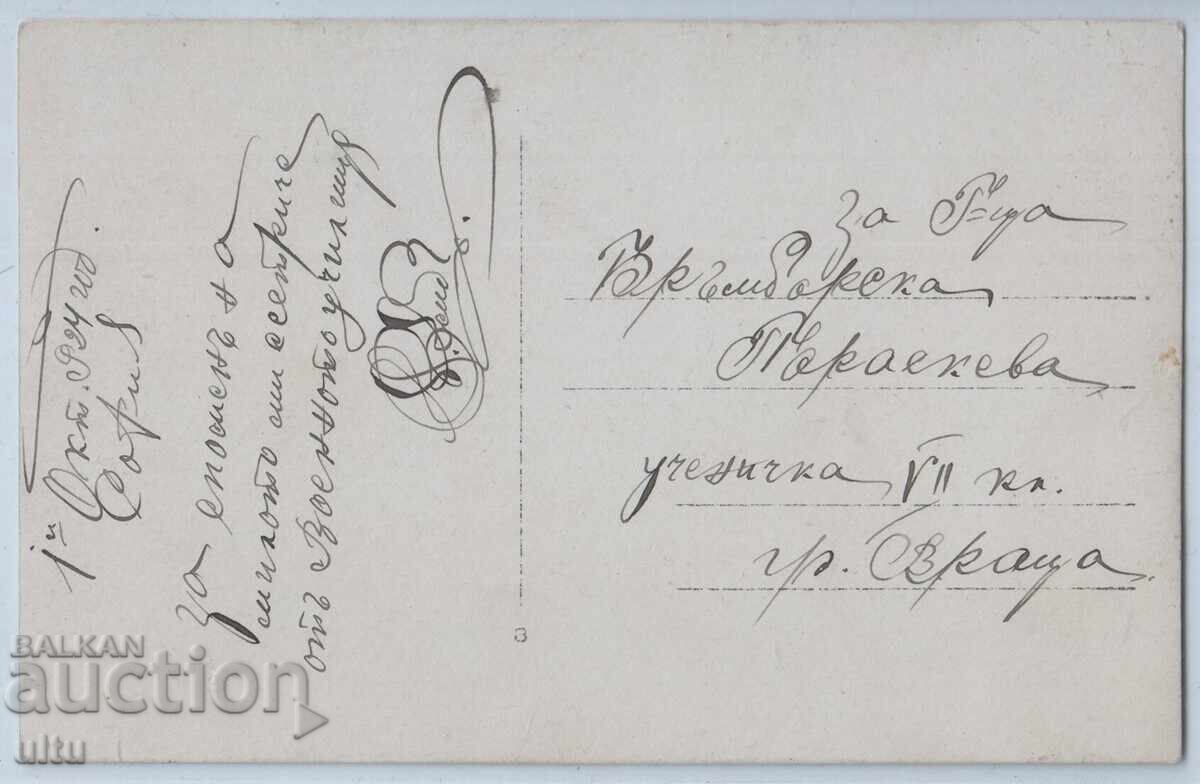 1ий Окт. 924 год.
София
За споменъ на
милото ми сестриче
отъ Военното училище
За Г-ца
Връмборска
Параскева
ученичка VII кл.
гр. Враца
8
BALKAN
auction
ultu